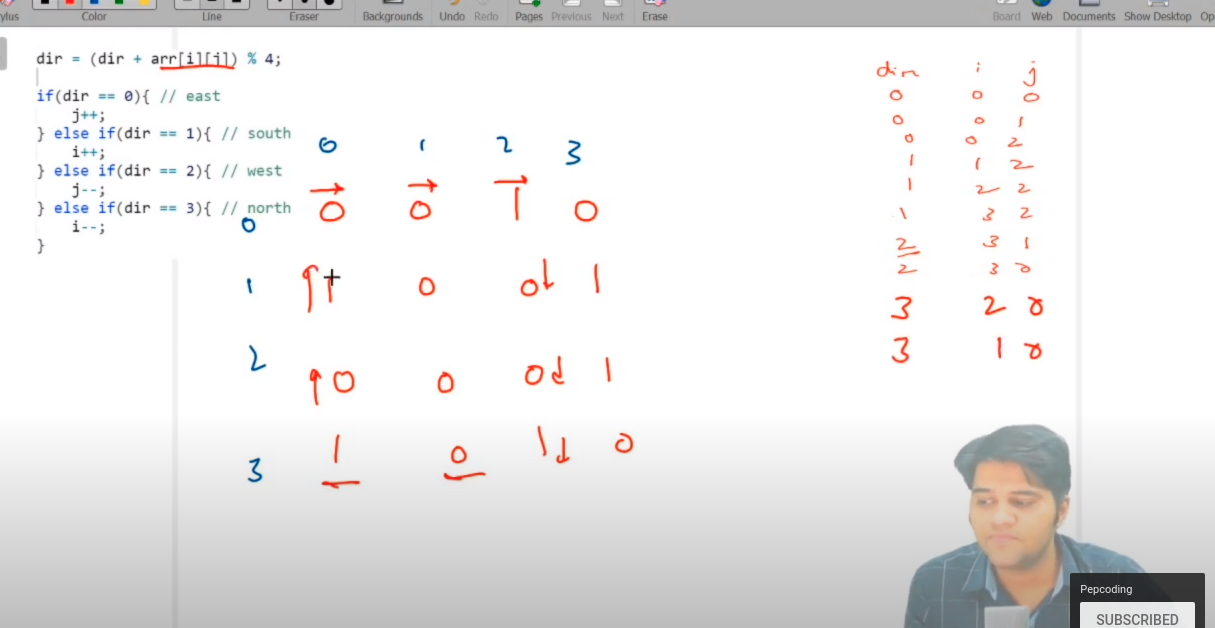 ylus Color Line Eraser Backgrounds Undo Redo Pages Previous Next Erase Board Web Documents Show Desktop Op
dir = (dir + arr[i][j]) % 4;
if(dir == 0){ // east
j++;
} else if(dir == 1){ // south
i++;
} else if(dir == 2){ // west
j--;
} else if(dir == 3){ // north
i--;
}
0 1 2 3
0 0 0 1 0
1 1 0 0 1
2 0 0 0 1
3 1 0 1 0
dir i j
0 0 0
0 0 1
0 0 2
1 1 2
1 2 2
1 3 2
2 3 1
2 3 0
3 2 0
3 1 0
Pepcoding
SUBSCRIBED